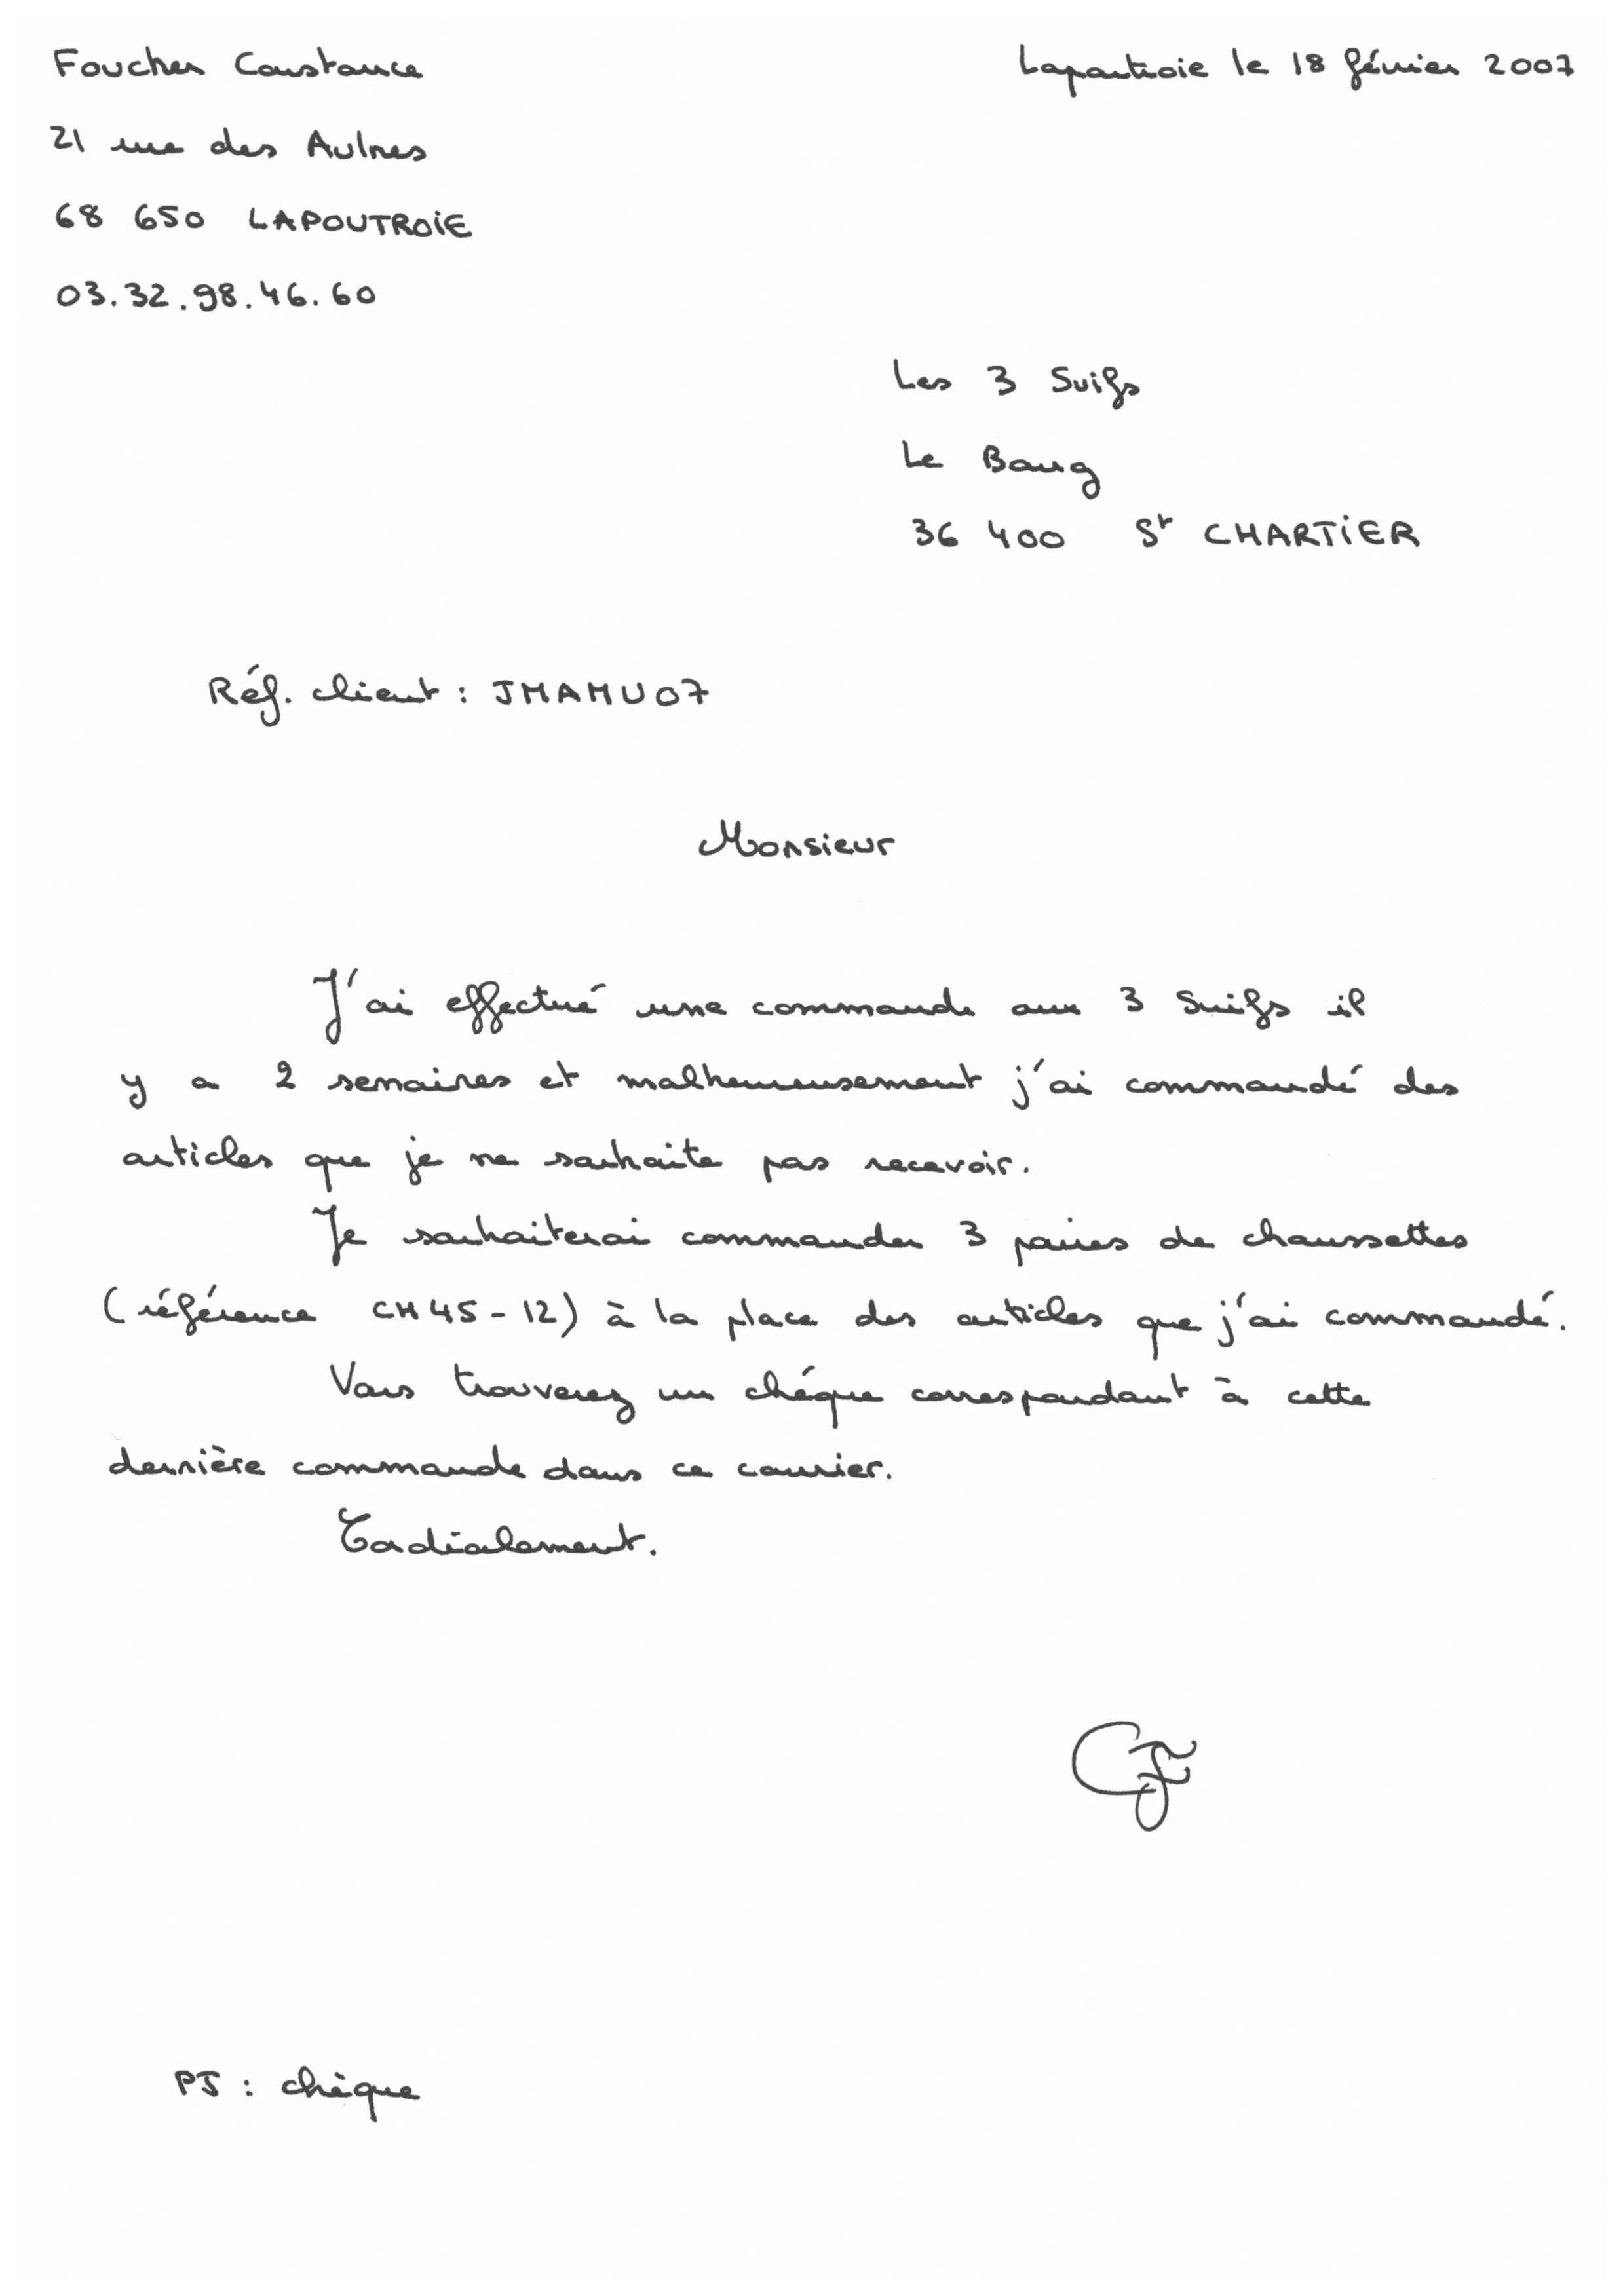 Foucher Constance
Lapoutroie le 18 février 2007
21 rue des Aulnes
68 650 LAPOUTROIE
03.32.98.46.60
Les 3 Suifs
Le Bourg
36 400 St CHARTIER
Réf. client : JMAMU07
Monsieur
J'ai effectué une commande aux 3 Suifs il
y a 2 semaines et malheureusement j'ai commandé des
articles que je ne souhaite pas recevoir.
Je souhaiterai commander 3 paires de chaussettes
(référence CH45-12) à la place des articles que j'ai commandé.
Vous trouverez un chéque correspondant à cette
dernière commande dans ce courrier.
Cordialement.
CF
PJ : chèque